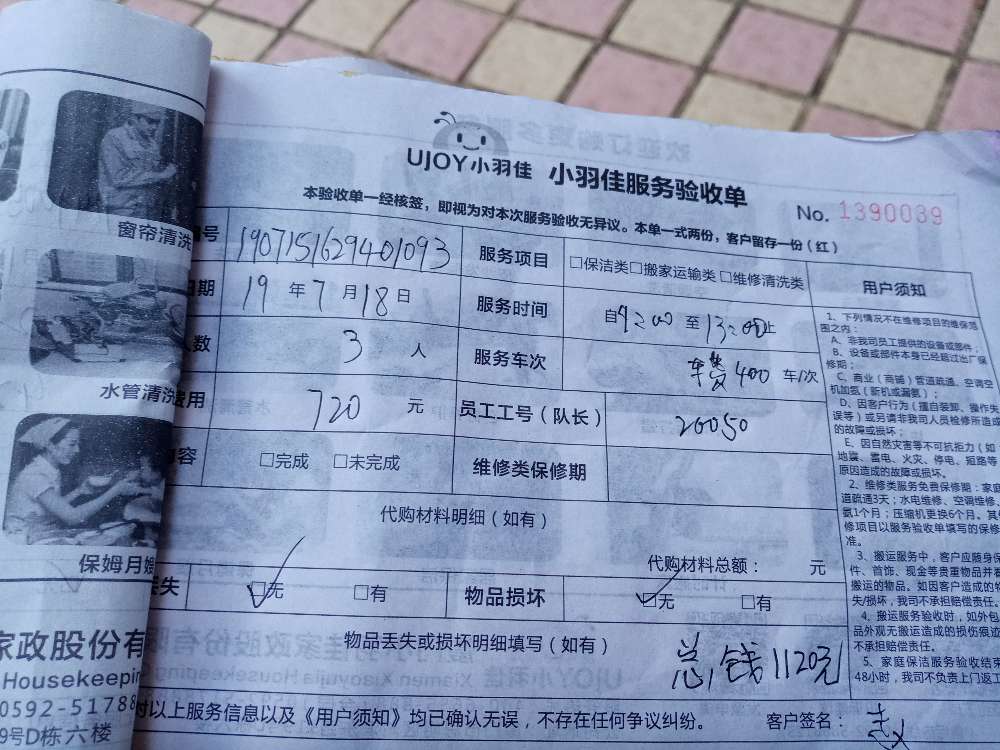 UJOY小羽佳 小羽佳服务验收单
No. 1390039
本验收单一经核签，即视为对本次服务验收无异议。本单一式两份，客户留存一份（红）
号 1907151629401093 服务项目 □保洁类□搬家运输类□维修清洗类 用户须知
日期 19 年 7 月 18 日 服务时间 自9:00 至 13:00止
人数 3 人 服务车次 车费400 车/次
费用 720 元 员工工号（队长） 20050
容 □完成 □未完成 维修类保修期
代购材料明细（如有）
代购材料总额： 元
丢失 □无 □有 物品损坏 □无 □有
物品丢失或损坏明细填写（如有）
总钱1120元
对以上服务信息以及《用户须知》均已确认无误，不存在任何争议纠纷。 客户签名：
1、下列情况不在维修项目的维保范
围之内：
A、非我司员工提供的设备或部件；
B、设备或部件本身已经超过出厂保
修期；
C、商业（商铺）管道疏通、空调空
机加氨（新机或漏氨）；
D、因客户行为（擅自装卸、操作失
误等）或另请非我司人员检修所造成
的故障或损坏；
E、因自然灾害等不可抗拒力（如
地震、雷电、火灾、停电、短路等
原因造成的故障或损坏。
2、维修类服务免费保修期：家庭
道疏通3天；水电维修、空调维修、
氨1个月；压缩机更换6个月。其
修项目以服务验收单填写的保修
准。
3、搬运服务中，客户应随身保
件、首饰、现金等贵重物品并看
搬运的物品。如因客户造成的物
失/损坏，我司不承担赔偿责任。
4、搬运服务验收时，如外包
品外观无搬运造成的损伤痕迹
不承担赔偿责任。
5、家庭保洁服务验收结束
48小时，我司不负责上门返工
窗帘清洗
水管清洗
保姆月嫂
家政股份有
Housekeepin
0592-51788
9号D栋六楼